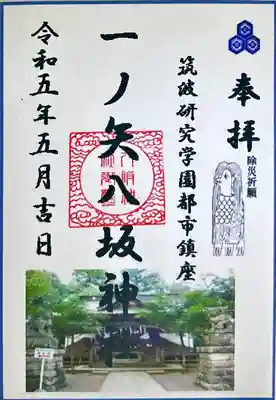 奉拝
除災祈願
筑波研究学園都市鎮座
一ノ矢八坂神社
令和五年五月吉日